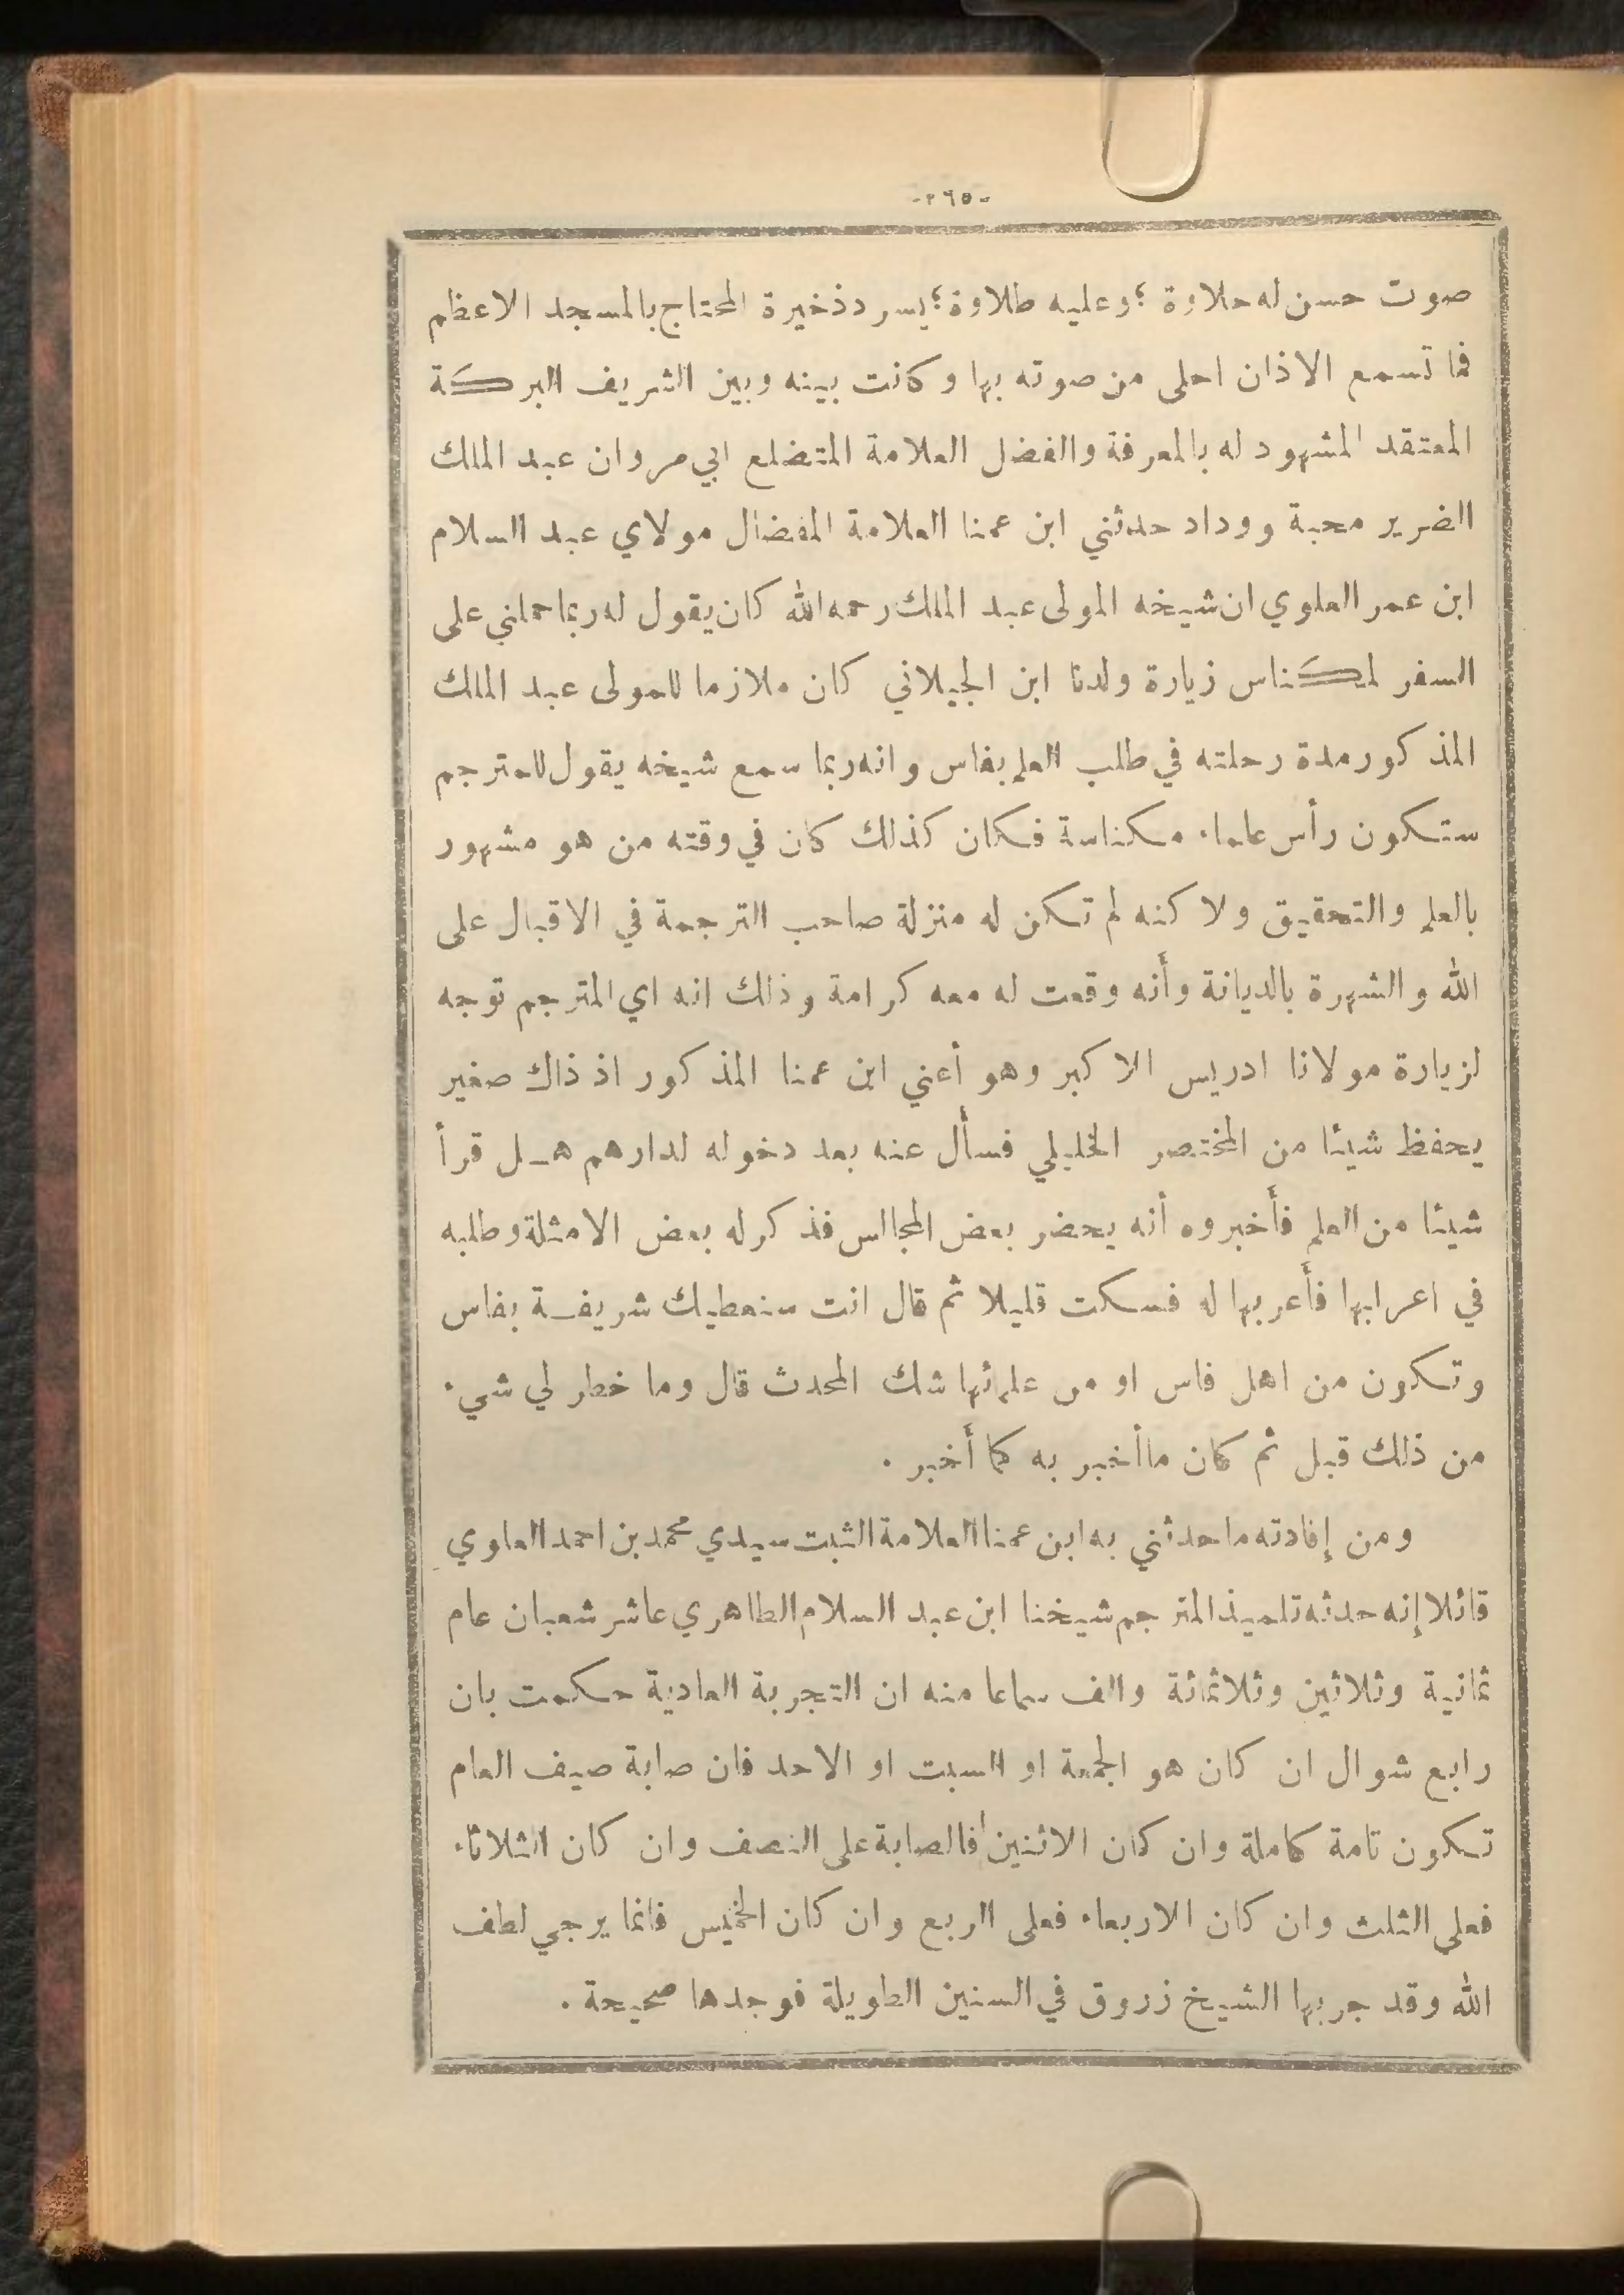 -٢٦٥-
صوت حسن له حلاوة ؛ وعليه طلاوة ؛ يسرد ذخيرة المحتاج بالمسجد الاعظم
فما تسمع الاذان احلى من صوته بها وكانت بينه وبين الشريف البركة
المعتقد المشهود له بالمعرفة والفضل العلامة المتضلع ابي مروان عبد الملك
الضرير محبة ووداد حدثني ابن عمنا العلامة المفضال مولاي عبد السلام
ابن عمر العلوي ان شيخه المولى عبد الملك رحمه الله كان يقول له ربما حملني على
السفر لمكناس زيارة ولدنا ابن الجيلاني كان ملازما للمولى عبد الملك
المذكور مدة رحلته في طلب العلم بفاس وانه ربما سمع شيخه يقول للمترجم
ستكون رأس علماء مكناسة فكان كذلك كان في وقته من هو مشهور
بالعلم والتحقيق ولا كنه لم تكن له منزلة صاحب الترجمة في الاقبال على
الله والشهرة بالديانة وأنه وقعت له معه كرامة وذلك انه اي المترجم توجه
لزيارة مولانا ادريس الاكبر وهو أعني ابن عمنا المذكور اذ ذاك صغير
يحفظ شيئا من المختصر الخليلي فسأل عنه بعد دخوله لدارهم هـل قرأ
شيئا من العلم فأخبروه أنه يحضر بعض المجالس فذكر له بعض الامثلة وطلبه
في اعرابها فأعربها له فسكت قليلا ثم قال انت سنعطيك شريفـة بفاس
وتكون من اهل فاس او من علمائها شك المحدث قال وما خطر لي شيء
من ذلك قبل ثم كان ما أخبر به كما أخبر .
ومن إفادته ما حدثني به ابن عمنا العلامة الثبت سيدي محمد بن احمد العلوي
قائلا إنه حدثه تلميذ المترجم شيخنا ابن عبد السلام الطاهري عاشر شعبان عام
ثمانية وثلاثين وثلاثمائة والف سماعا منه ان التجربة العادية حكمت بان
رابع شوال ان كان هو الجمعة او السبت او الاحد فان صابة صيف العام
تكون تامة كاملة وان كان الاثنين فالصابة على النصف وان كان الثلاثاء
فعلى الثلث وان كان الاربعاء فعلى الربع وان كان الخميس فانما يرجي لطف
الله وقد جربها الشيخ زروق في السنين الطويلة فوجدها صحيحة .